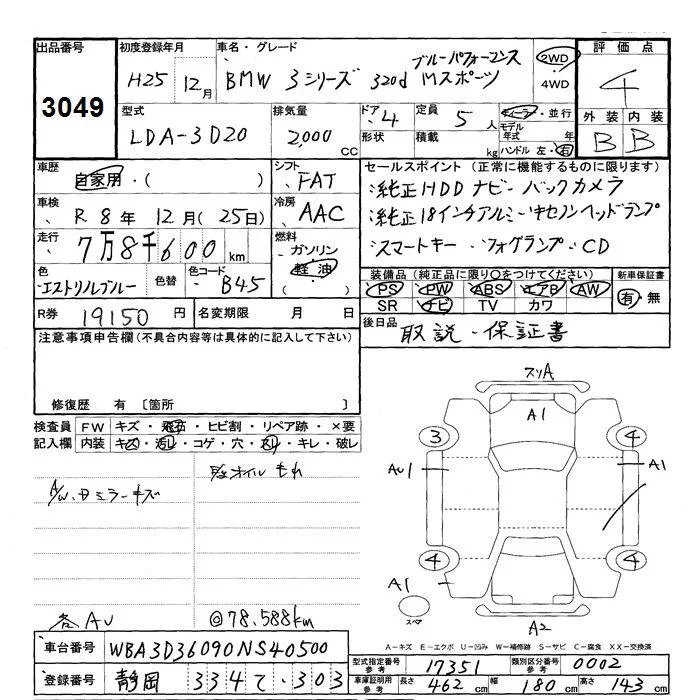 出品番号 初度登録年月 車名・グレード 評価点
3049 H25年 12月 BMW 3シリーズ 320d ブルーパフォーマンス Mスポーツ 2WD・4WD 4
型式 排気量 ドア 4 定員 5人 ディーラー・並行 外装 内装
LDA-3D20 2,000CC 形状 積載 kg モデル年式 年 ハンドル 左・右 B B
車歴 シフト セールスポイント (正常に機能するものに限ります)
自家用・( ) FAT ・純正HDDナビ・バックカメラ
車検 R 8年 12月(25日) 冷房 AAC ・純正18インチアルミ・キセノンヘッドランプ
走行 7万8千600km 燃料 ガソリン 軽油 ( ) ・スマートキー ・フォグランプ・CD
色 エストリルブルー 色替 色コード B45 装備品(純正品に限り○をつけてください) 新車保証書
PS PW ABS エアB AW 有・無
SR ナビ TV カワ
R券 19150円 名変期限 月 日 後日品 取説・保証書
注意事項申告欄(不具合内容等は具体的に記入して下さい)
修復歴 有 〔箇所 〕
検査員 FW キズ・飛石・ヒビ割・リペア跡・×要
記入欄 内装 キズ・汚レ・コゲ・穴・スレ・キレ・破レ
オイルもれ
A/W、ミラーキズ
各AU ◎78.588km
スリA
A1
3 4
AU1 A1
4 4
A1
スペア
A2
A-キズ E-エクボ U-凹み W-補修跡 S-サビ C-腐食 XX-交換済
車台番号 WBA3D36090NS40500
型式指定番号 参考 17351 類別区分番号 参考 0002
登録番号 静岡 334 て・303
車庫証明用 参考 長さ 462cm 幅 180cm 高さ 143cm